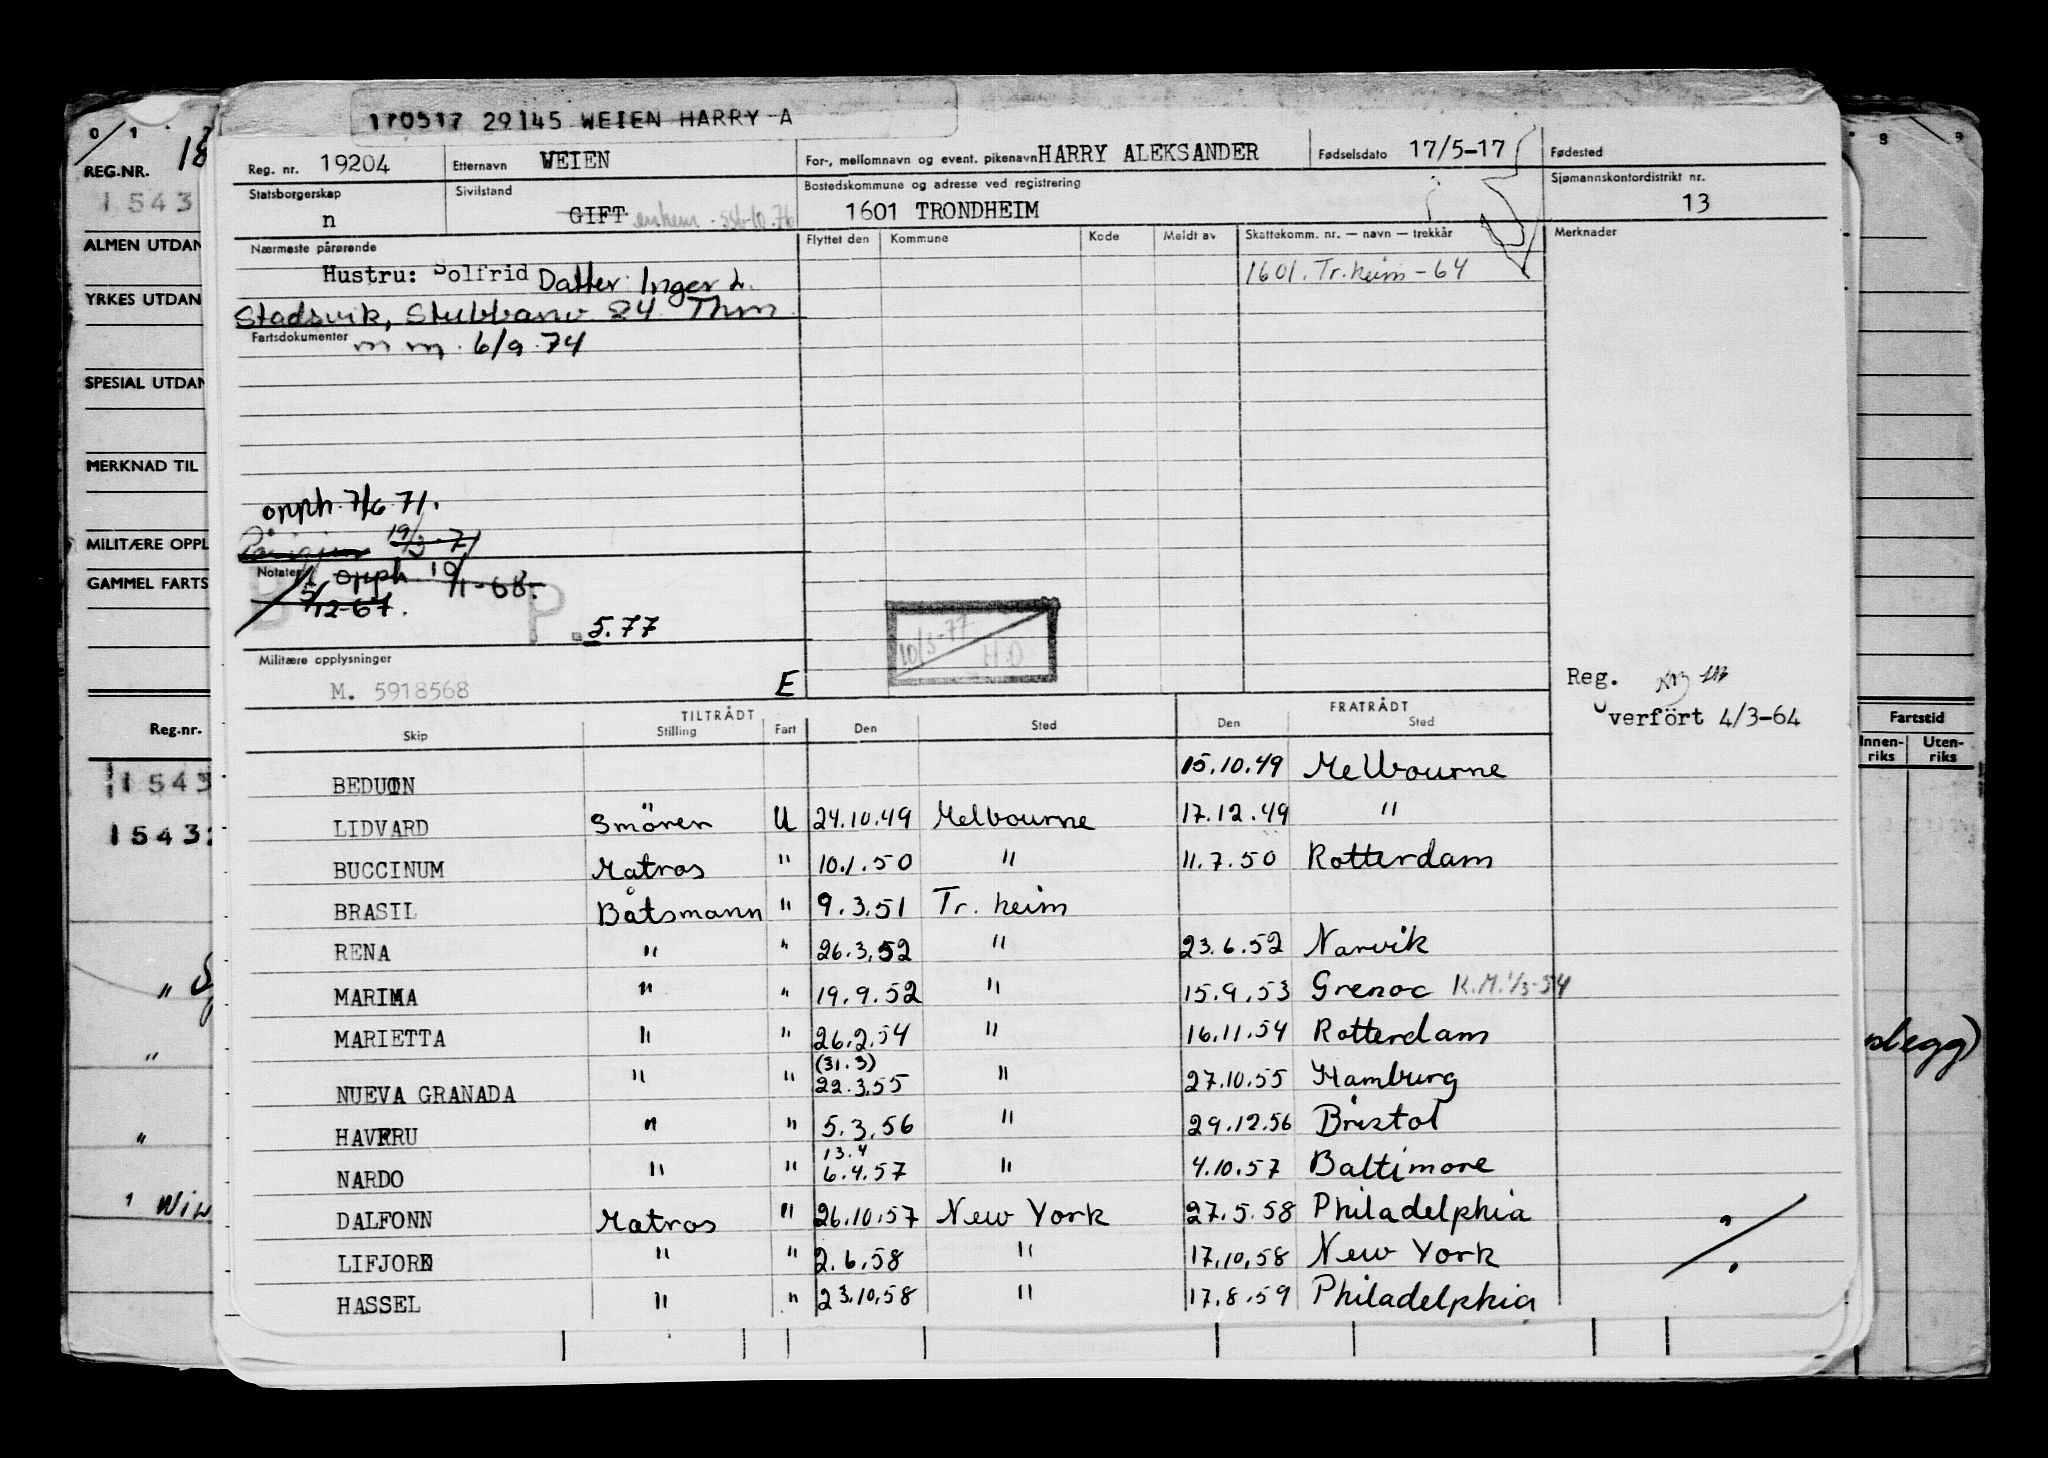 170517 29145 WEIEN HARRY A
0 1
REG.NR. 18
1543
ALMEN UTDAN
YRKES UTDAN
SPESIAL UTDAN
MERKNAD TIL
MILITÆRE OPPL
GAMMEL FARTS
Reg.nr.
1543
1543
8 9
Reg. nr. 19204 Etternavn WEIEN For-, mellomnavn og event. pikenavn HARRY ALEKSANDER Fødselsdato 17/5-17 Fødested
Statsborgerskap n Sivilstand GIFT Bostedskommune og adresse ved registrering 1601 TRONDHEIM Sjømannskontordistrikt nr. 13
Nærmeste pårørende Flyttet den Kommune Kode Meldt av Skattekomm. nr. — navn — trekkår Merknader
Hustru: Solfrid Datter: Inger L. 1601. Tr.heim - 64
Stadsvik, Stubbanv 24 Thm
Fartsdokumenter m m. 6/9 74
opph. 7/6 71.
19/3 - 71
Notater opph 10/1-68.
5/12-67.
P 5.77
10/3-77 H.O
Militære opplysninger
M. 5918568 E
Reg.
Overført 4/3-64
TILTRÅDT FRATRÅDT
Skip Stilling Fart Den Sted Den Sted
Fartstid
Innen-riks Uten-riks
BEDUIN 15.10.49 Melbourne
LIDVARD Smörer U 24.10.49 Melbourne 17.12.49 "
BUCCINUM Matros " 10.1.50 " 11.7.50 Rotterdam
BRASIL Båtsmann " 9.3.51 Tr. heim
RENA " " 26.3.52 " 23.6.52 Narvik
MARIMA " " 19.9.52 " 15.9.53 Grenoc K.M. 1/3-54
MARIETTA " " 26.2.54 " 16.11.54 Rotterdam
(31.3)
NUEVA GRANADA " " 22.3.55 " 27.10.55 Hamburg
HAVFRU " " 5.3.56 " 29.12.56 Bristol
13.4
NARDO " " 6.4.57 " 4.10.57 Baltimore
DALFONN Matros " 26.10.57 New York 27.5.58 Philadelphia
LIFJORD " " 2.6.58 " 17.10.58 New York
HASSEL " " 23.10.58 " 17.8.59 Philadelphia